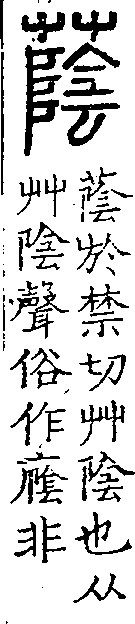 蔭
蔭於禁切艸陰也从
艸陰聲俗作廕非